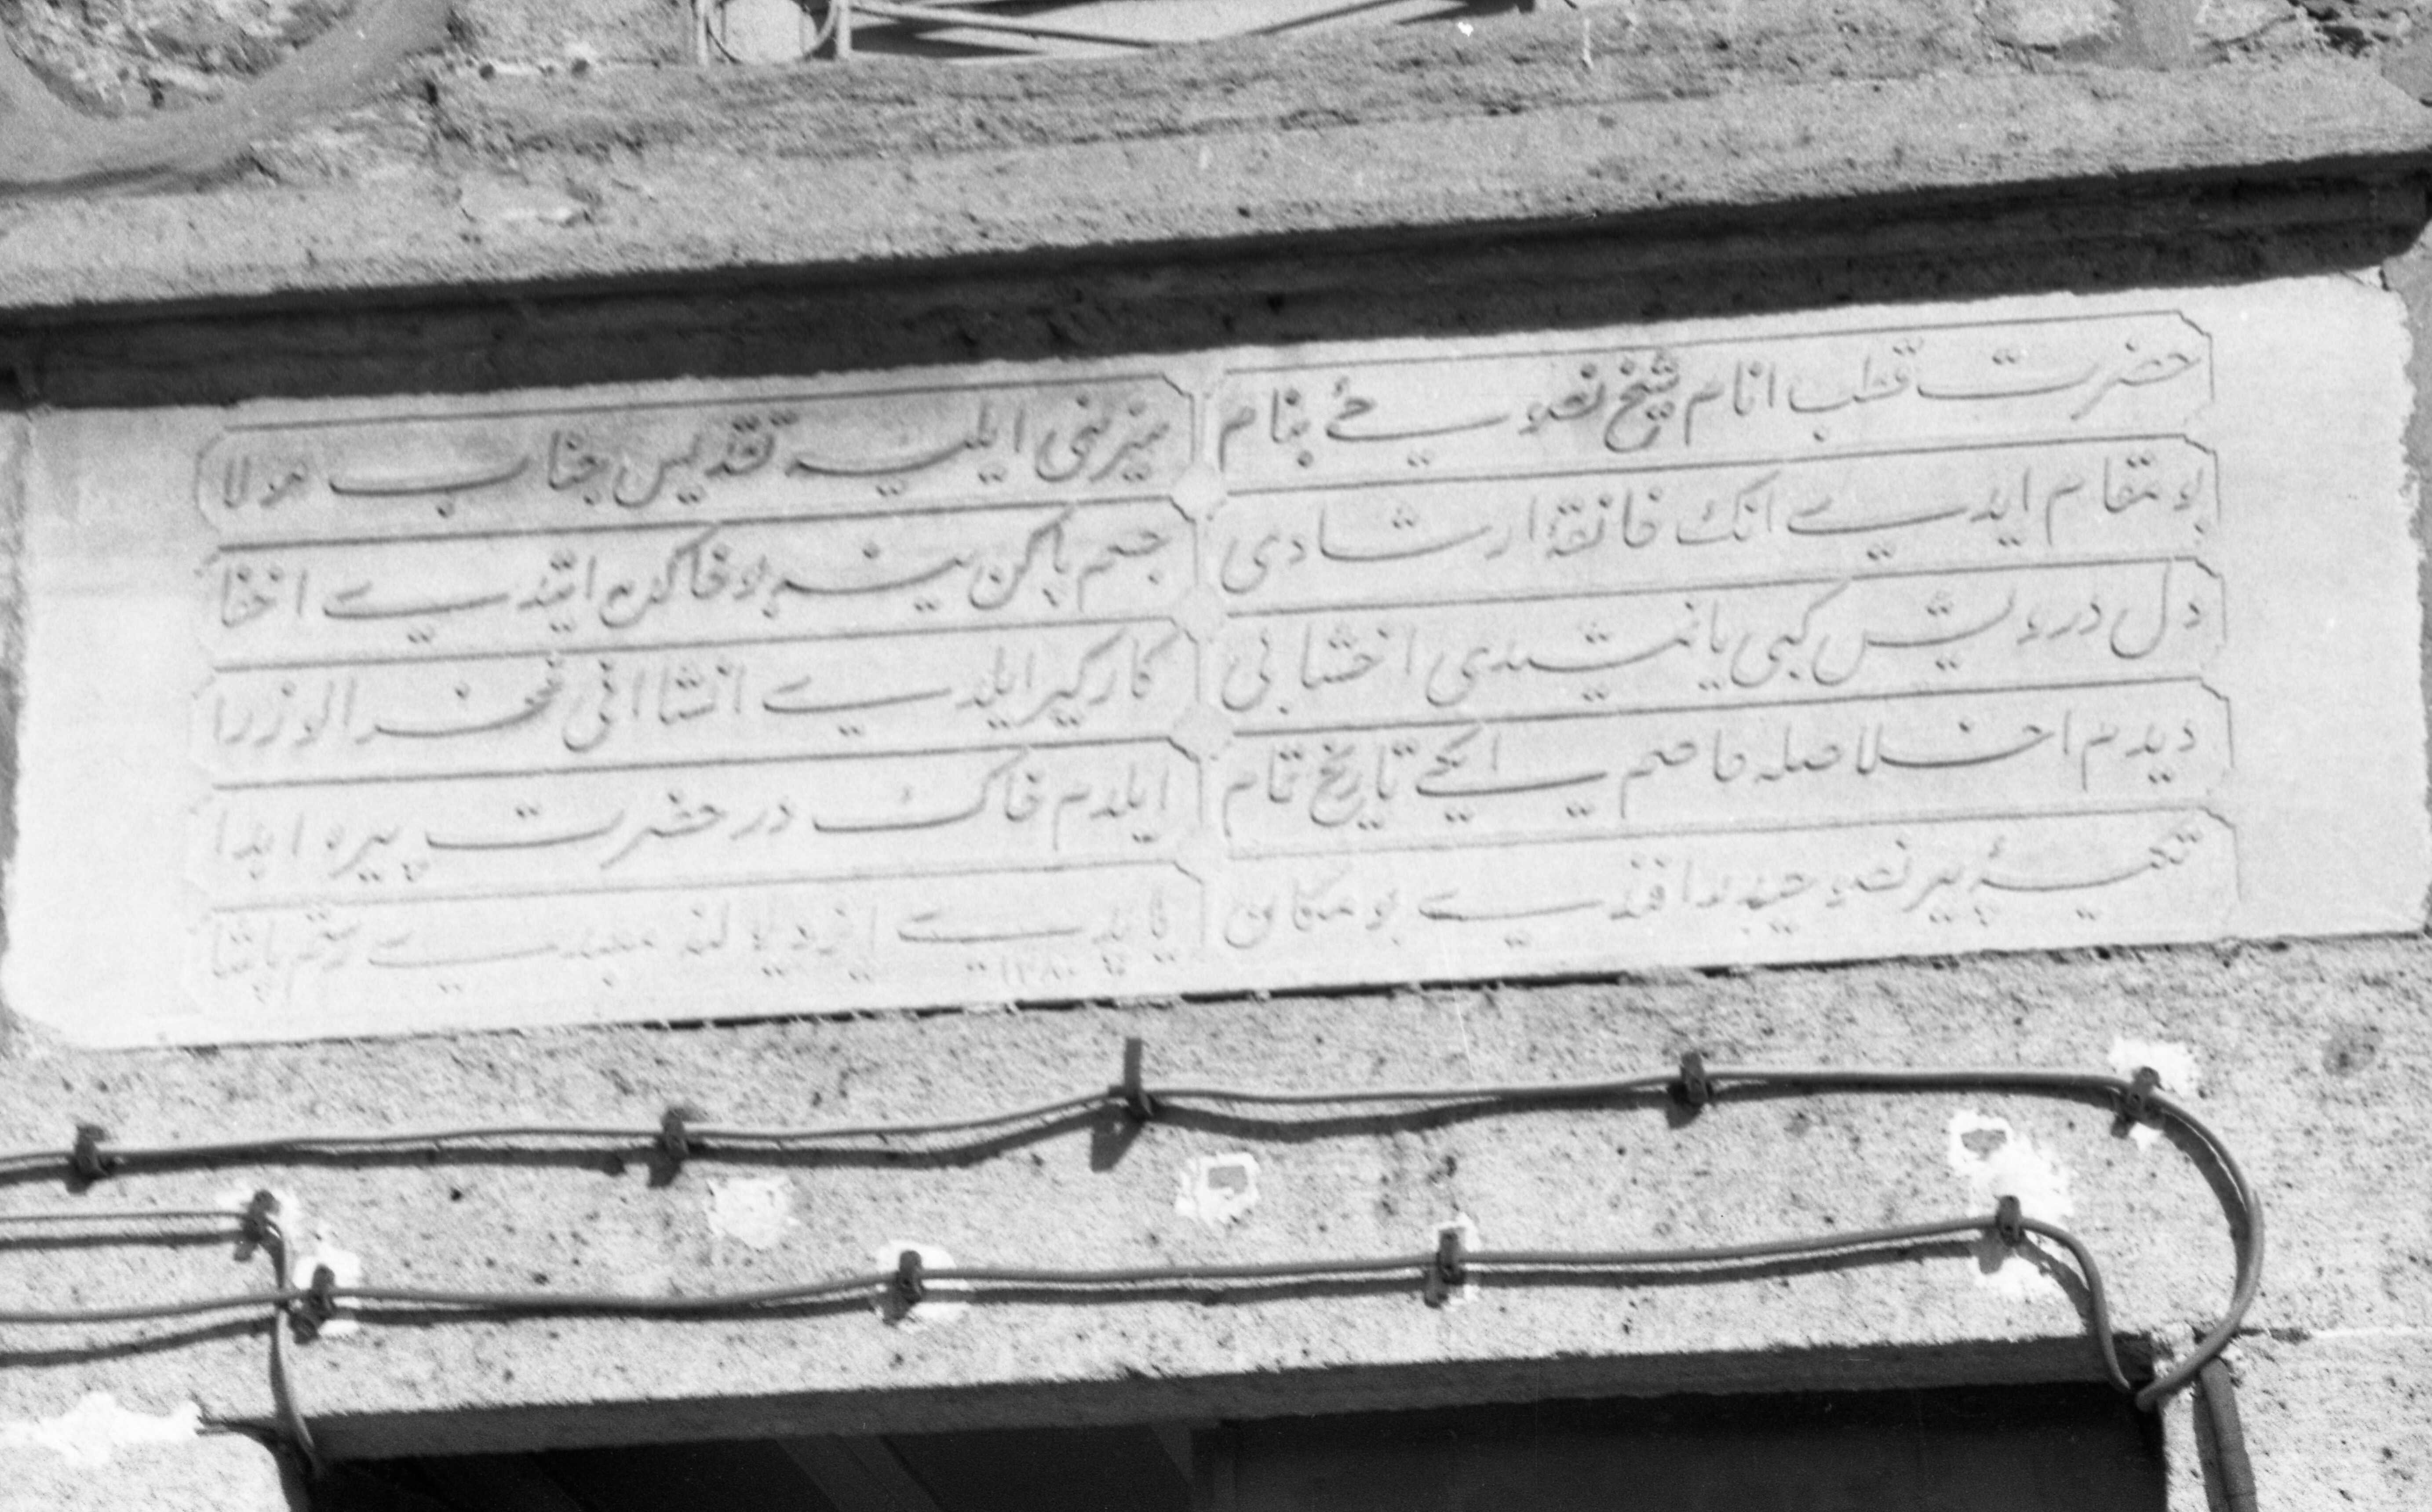 حضرت قطب انام شیخ نصوحئ بنام
سرنی ایلیه تقدیس جناب مولا
بو مقام ایدی انك خانقه ارشادی
جسم پاكن ینه بو خاكده ایتدی اخفا
دل درویش كبی یانمشیدی اخشابی
كاركیر ایلدی انشا انی فخر الوزرا
دیدم اخلاصله عاصم ایكی تاریخ تمام
ایلدم خاك در حضرت پیره اهدا
تكیۀ پیر نصوحیدر افندی بو مكان
یاپدی ایزد یولنه معبدی رستم پاشا
١٢٨٠